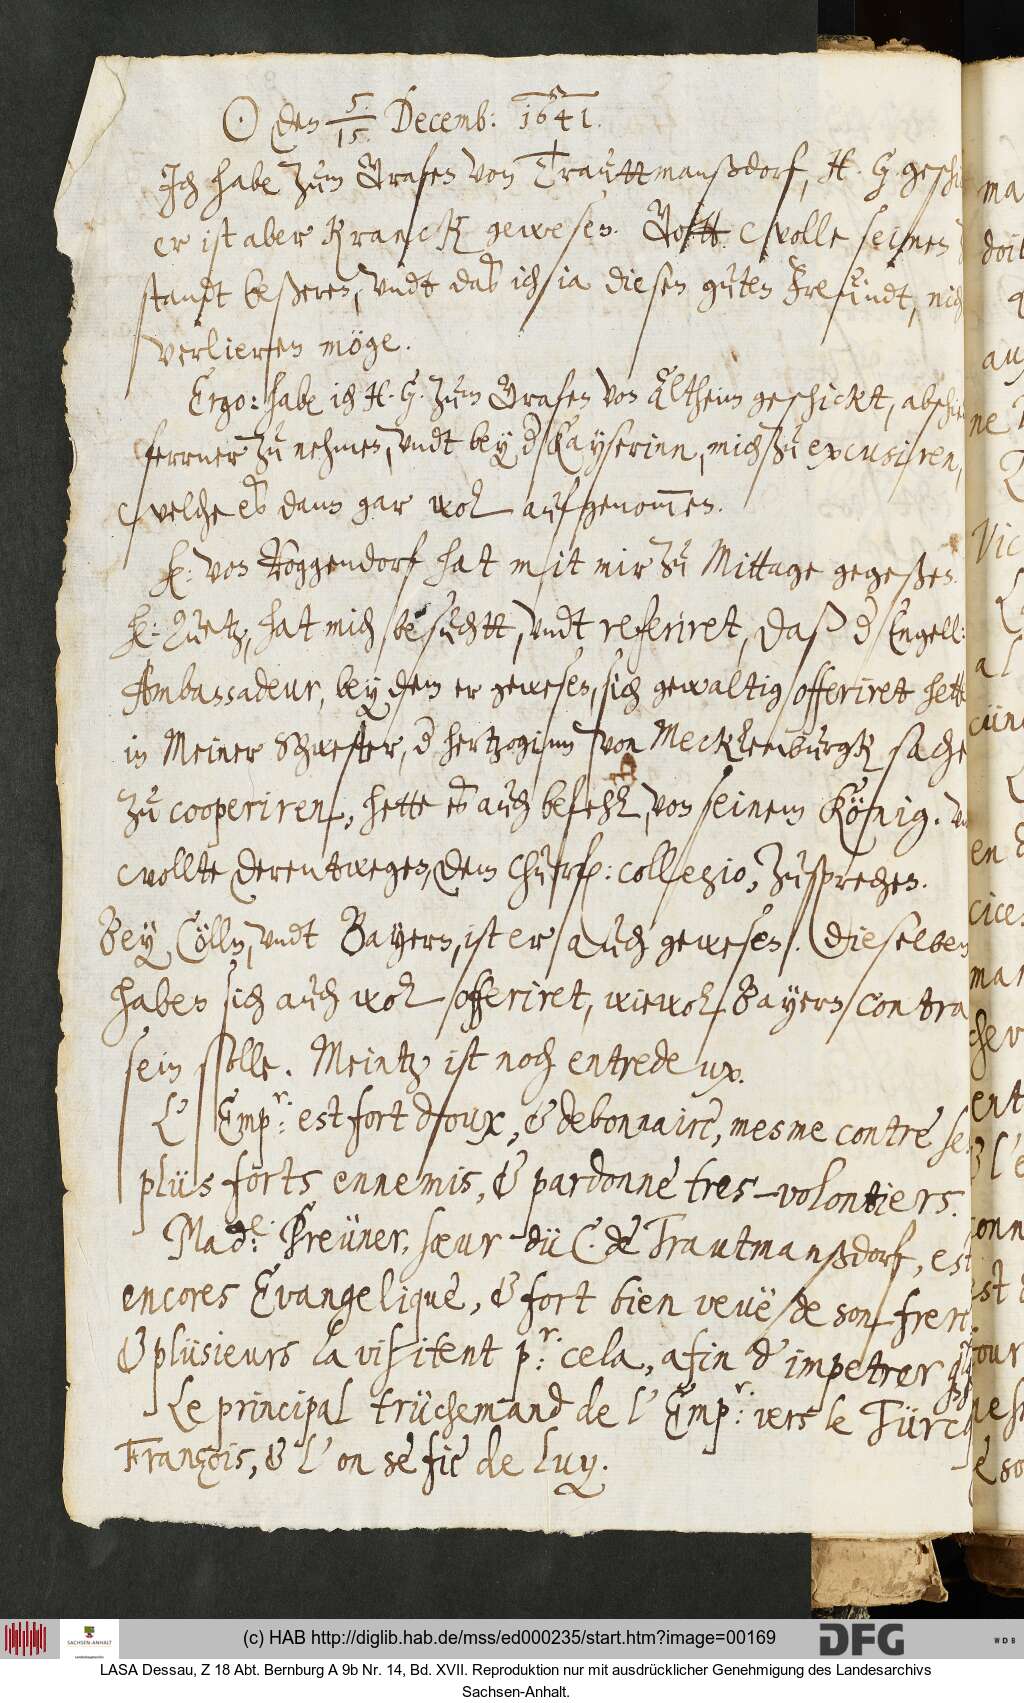 ☉ den 5./15. Decemb: 1641.
Ich habe zum Grafen von Trauttmanßdorf, H. G. geschi
er ist aber kranck gewesen. Gott wolle seinen
standt beßeren, vndt daß ich ia diesen guten Freündt, nich
verlieren möge.
Ergo: habe ich H. G. zum Grafen von Altheim geschickt, abschie
ferrner zu nehmen, vndt bey d Kayserinn, mich zu excusiren,
welche es dann gar wol aufgenom̅en.
H: von Roggendorf hat mit mir zu Mittage gegeßen.
H: hat mich besuchtt, vndt referiret, daß d Engell:
Ambassadeur, bey dem er gewesen, sich gewaltig offeriret hette
in Meiner Schwester, d hertzoginn von Mecklenburgk sache
zu cooperiren, hette es auch befehl, von seinem König. vn
wollte derentwegen, dem Churf: collegio, zusprechen.
Bey Cölln, vndt Bayern, ist er auch gewesen. Dieselben
haben sich auch wol offeriret, wiewol Bayern contra
sein solle. Meintz ist noch entredeux.
L' Emp:r est fort doux, & debonnaire, mesme contre se
plüs forts ennemis, & pardonne tres-volontiers.
Mad:e Preüner, sœur dü C. de Trautmanßdorf, est
encores Evangelique, & fort bien veuë de son frere,
& plüsieurs la visitent p:r cela, afin d' impetrer
Le principal trüchemand de l' Emp:r vers le Türcq
François, & l' on se fie de luy.
ma
doit
q
au
ne
Vic
al
en
cice
mar
chev
ent
& l'e
onn
est
our
e so
(c) HAB http://diglib.hab.de/mss/ed000235/start.htm?image=00169
SACHSEN-ANHALT
DFG
WDB
LASA Dessau, Z 18 Abt. Bernburg A 9b Nr. 14, Bd. XVII. Reproduktion nur mit ausdrücklicher Genehmigung des Landesarchivs
Sachsen-Anhalt.